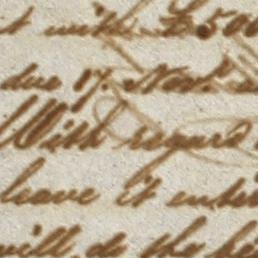 t with £500
due 17. Novr.
With regard
leave it
will do the